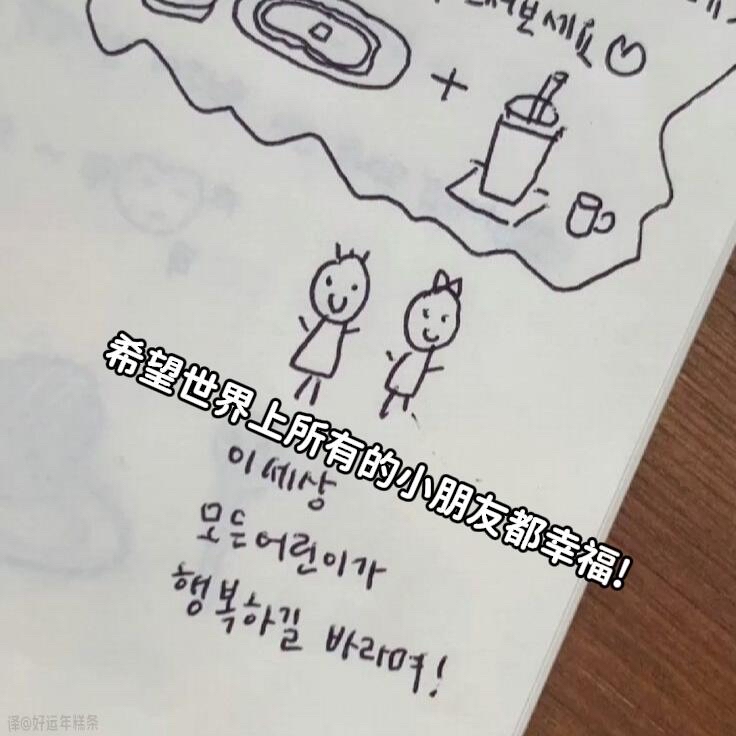 보세요♡
+
希望世界上所有的小朋友都幸福!
이 세상
모든 어린이가
행복하길 바라며!
译@好运年糕条